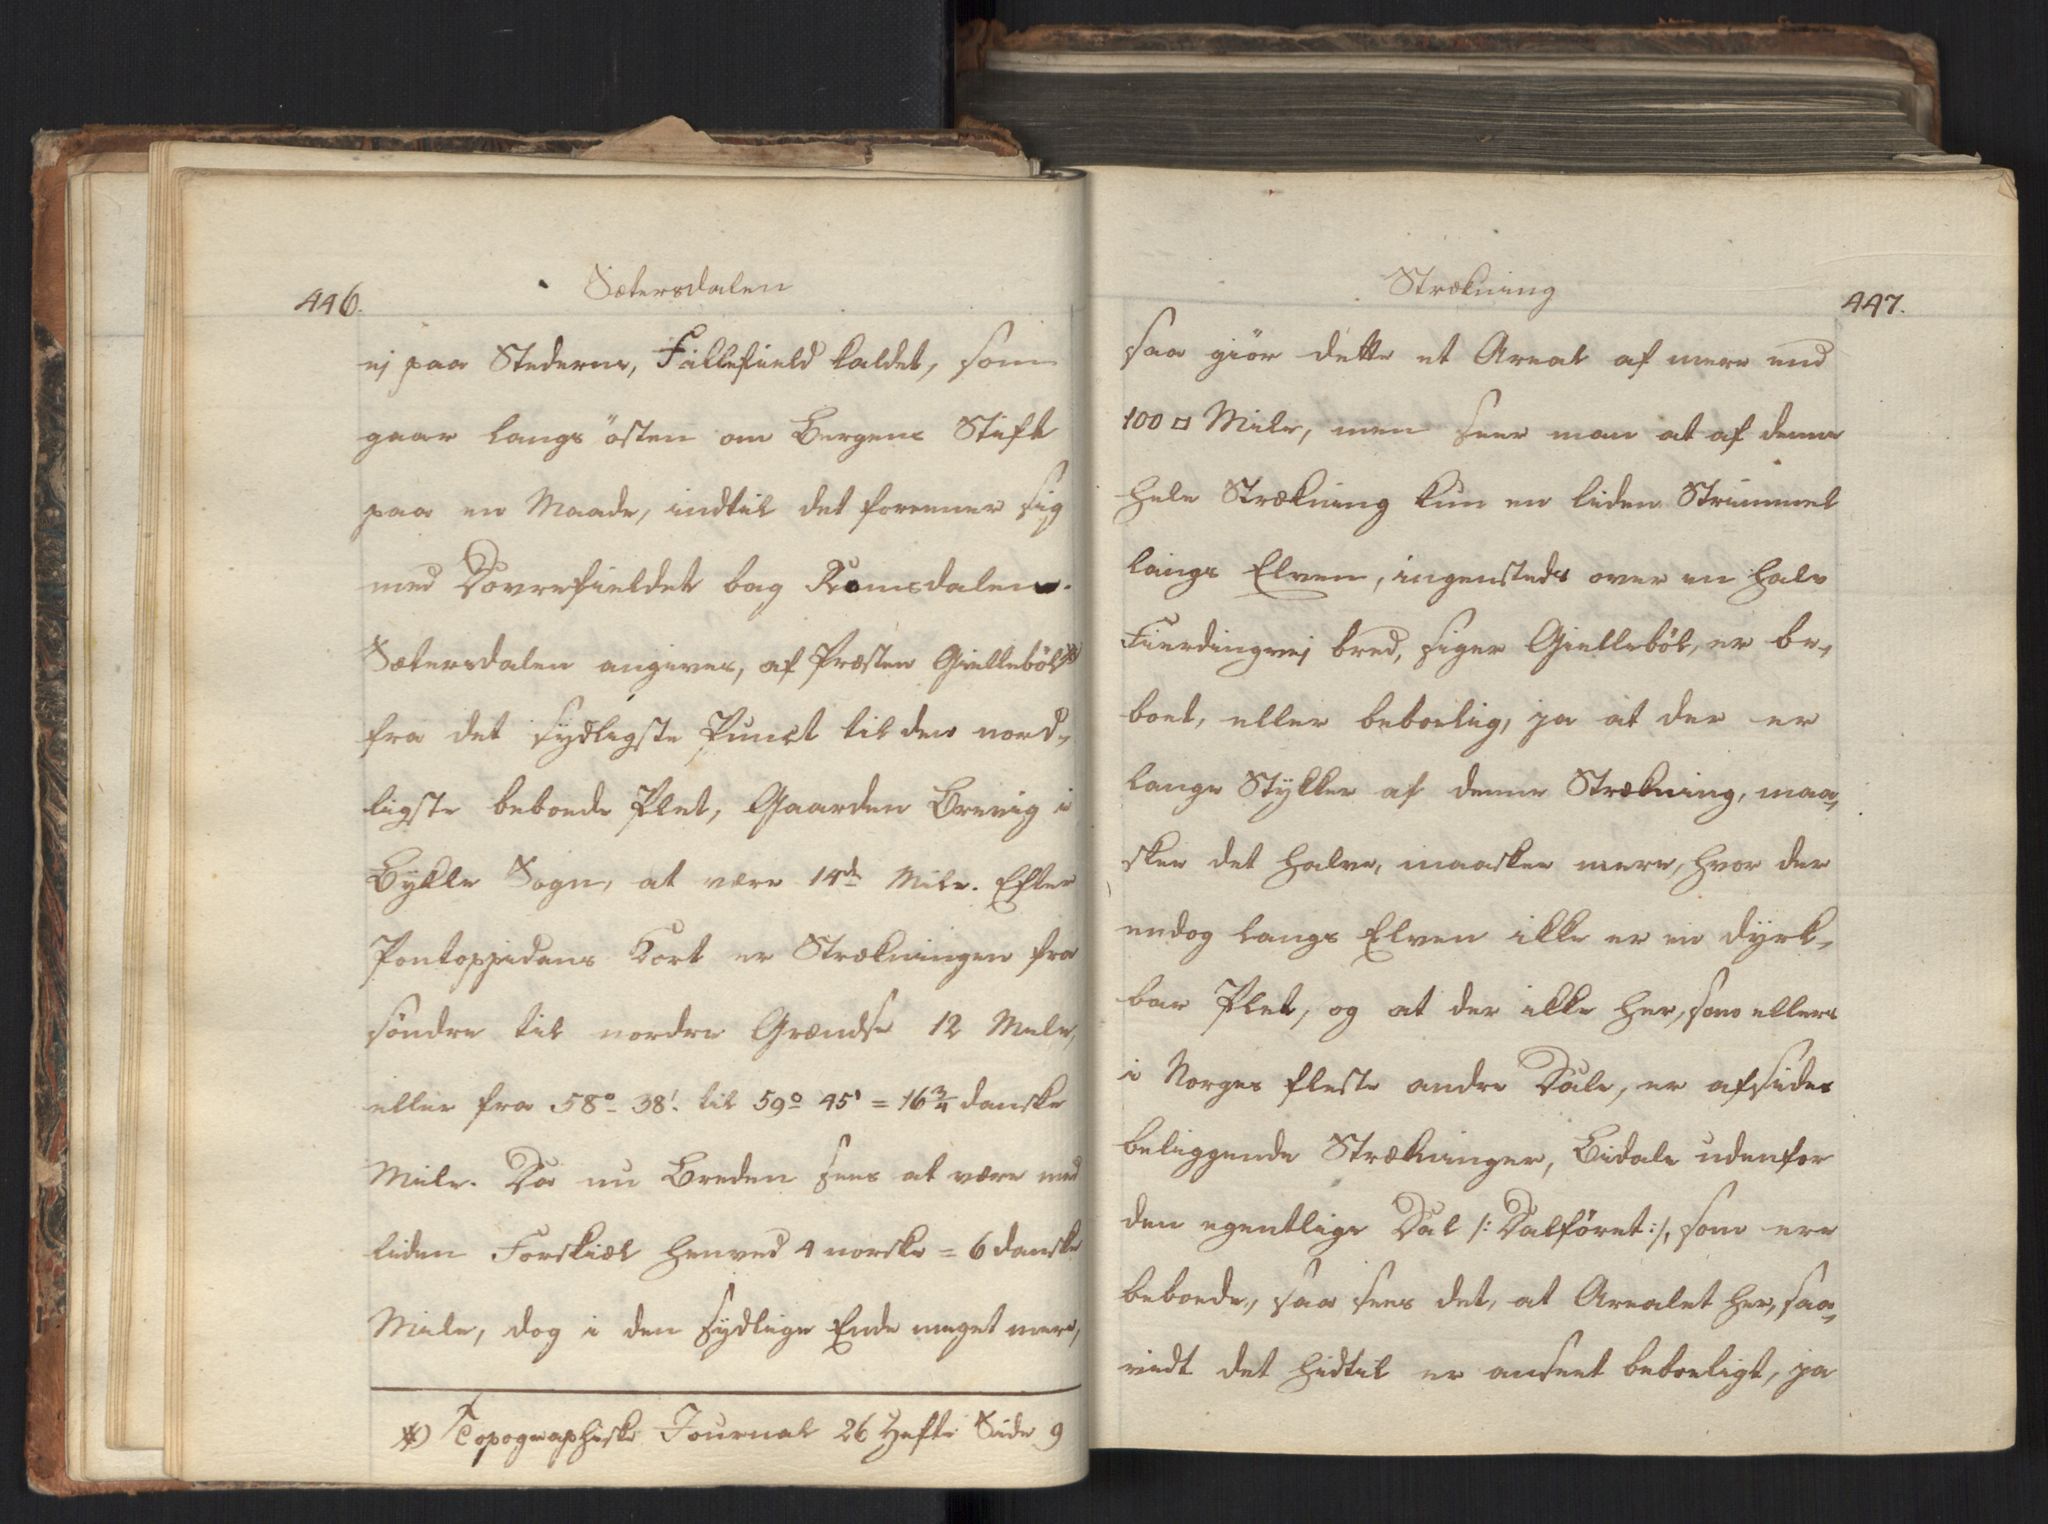 446.
Sætersdalen
ej paa Stederne, Fillefield kaldet, som
gaar langs östen om Bergens Stift
paa en Maade, indtil det forener sig
med Dovrefieldet bag Romsdalen.
Sætersdalen angives, af Præsten Gielleböl *)
fra det sydligste Punct til den nord-
ligste beboede Plet, Gaarden Brevig i
Bykle Sogn, at være 14de Mile. Efter
Pontoppidans Kort er Strækningen fra
söndre til nordre Grændse 12 Mile,
eller fra 58° 38' til 59° 45' = 16 3/4 danske
Mile. Da nu Breden sees at være med
liden Forskiæl henved 4 norske = 6 danske
Mile, dog i den sydlige Ende meget mere,
*) Topographiske Journal 26 Hefte Side 9
Strækning
447.
saa giör dette et Areal af mere end
100 □ Mile, men seer man at af denne
hele Strækning kun en liden Strimmel
langs Elven, ingensteds over en halv
Fierdingvej bred, siger Gielleböl, er be-
boet, eller beboelig, ja at der er
lange Stykker af denne Strækning, maa-
skee det halve, maaskee mere, hvor der
endog langs Elven ikke er en dyrk-
bar Plet, og at der ikke her, som ellers
i Norges fleste andre Dale, er afsides
beliggende Strækninger, Bidale udenfor
den egentlige Dal /: Dalföret :/, som ere
beboede, saa sees det, at Arealet her, saa-
vidt det hidtil er anseet beboeligt, ja